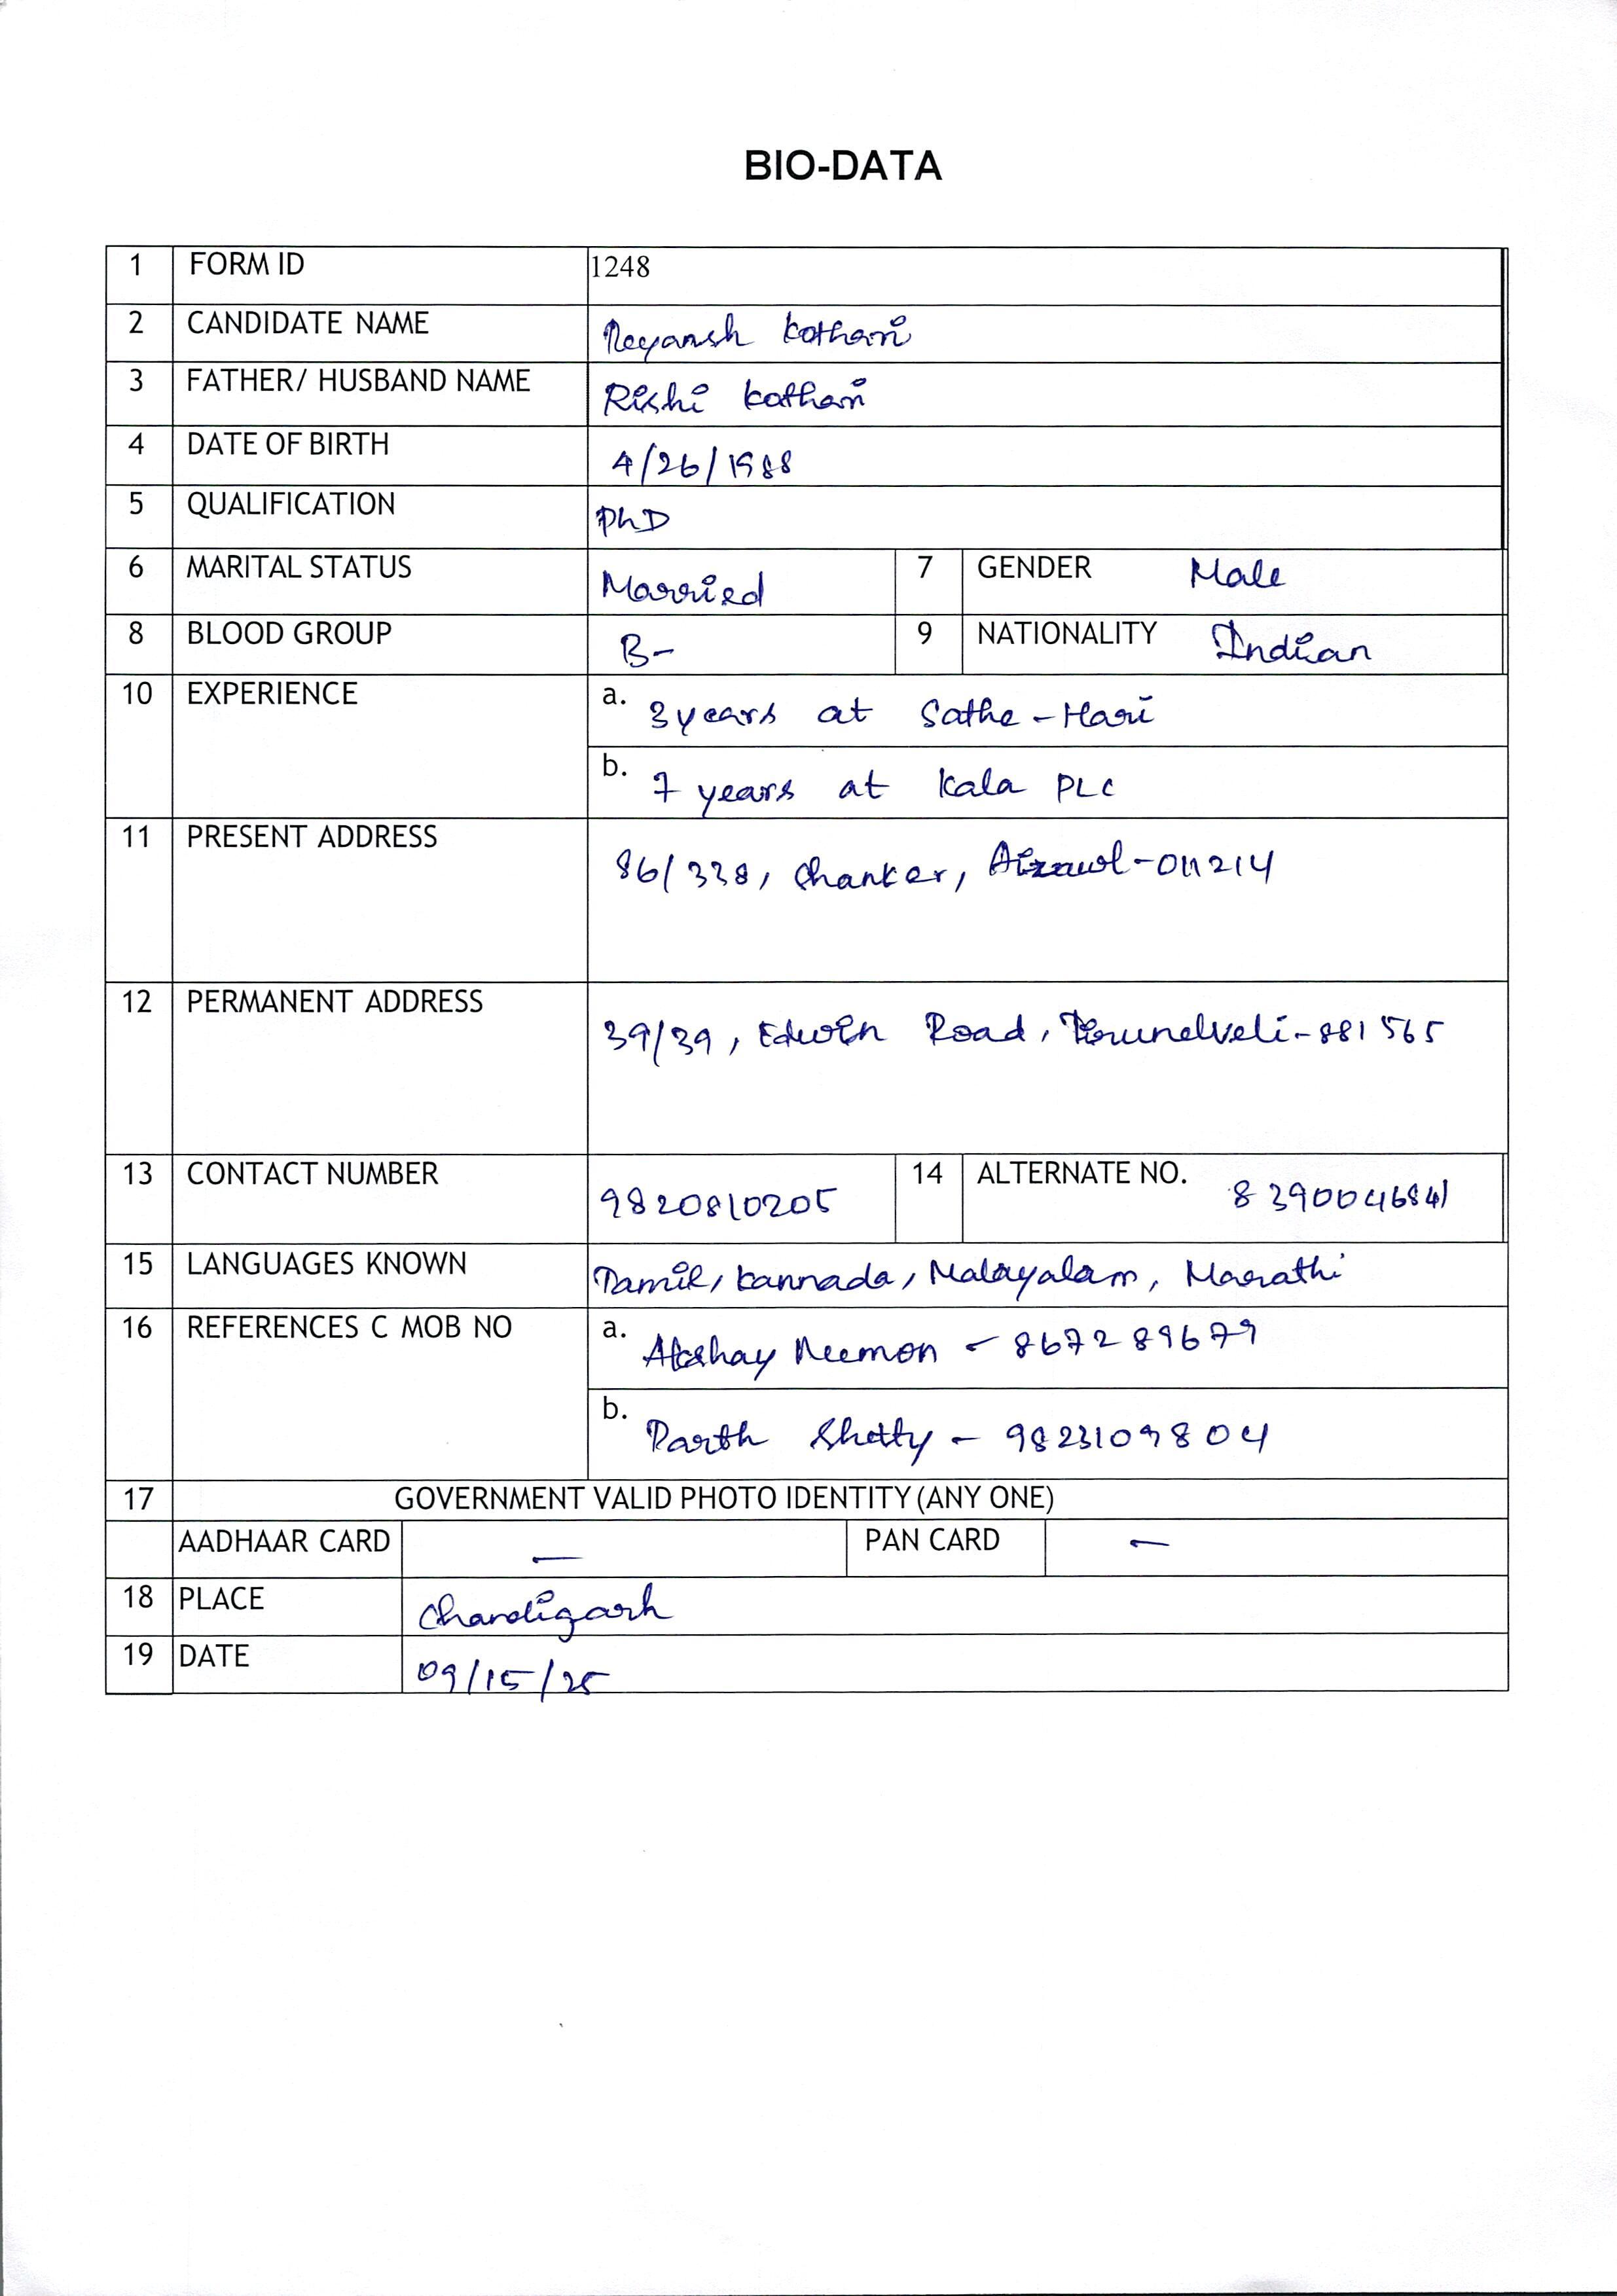 BIO-DATA
1 FORM ID 1248
2 CANDIDATE NAME Reyansh Kothari
3 FATHER/ HUSBAND NAME Rishi Kothari
4 DATE OF BIRTH 4/26/1988
5 QUALIFICATION PhD
6 MARITAL STATUS Married 7 GENDER Male
8 BLOOD GROUP B- 9 NATIONALITY Indian
10 EXPERIENCE a. 3 years at Sathe-Hari
b. 7 years at Kala PLC
11 PRESENT ADDRESS 86/338, Chanker, Aizawl-011214
12 PERMANENT ADDRESS 39/39, Edwin Road, Tirunelveli-881565
13 CONTACT NUMBER 9820810205 14 ALTERNATE NO. 8390046841
15 LANGUAGES KNOWN Tamil, Kannada, Malayalam, Marathi
16 REFERENCES C MOB NO a. Akshay - 867289679
b. Parth Shetty - 9823109804
17 GOVERNMENT VALID PHOTO IDENTITY (ANY ONE)
AADHAAR CARD - PAN CARD -
18 PLACE Chandigarh
19 DATE 09/15/25